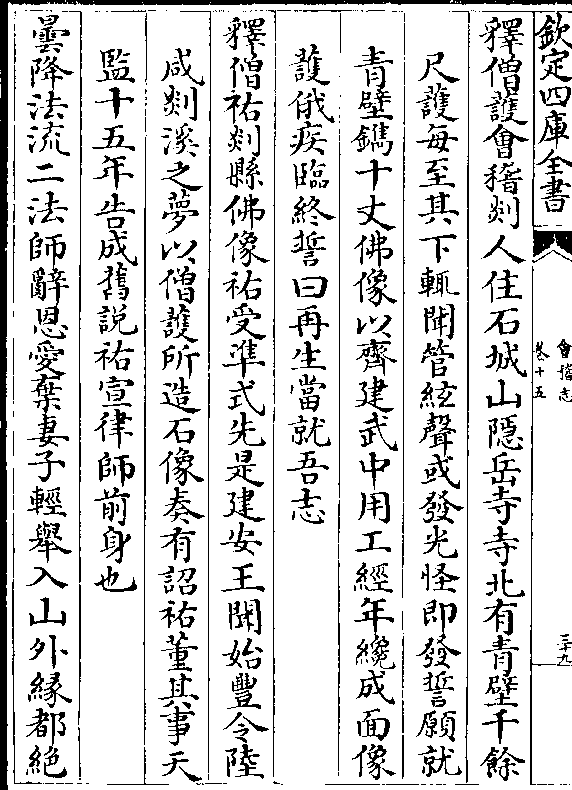 欽定四庫全書
會稽志
卷十五
三十九
釋僧護會稽剡人住石城山隱岳寺寺北有青壁千餘
尺護每至其下輒聞管絃聲或發光怪即發誓願就
青壁鐫十丈佛像以齊建武中用工經年纔成面像
護俄疾臨終誓曰再生當就吾志
釋僧祐剡縣佛像祐受準式先是建安王聞始豐令陸
咸剡溪之夢以僧護所造石像奏有詔祐董其事天
監十五年告成舊說祐宣律師前身也
曇降法流二法師辭恩愛棄妻子輕舉入山外緣都絕